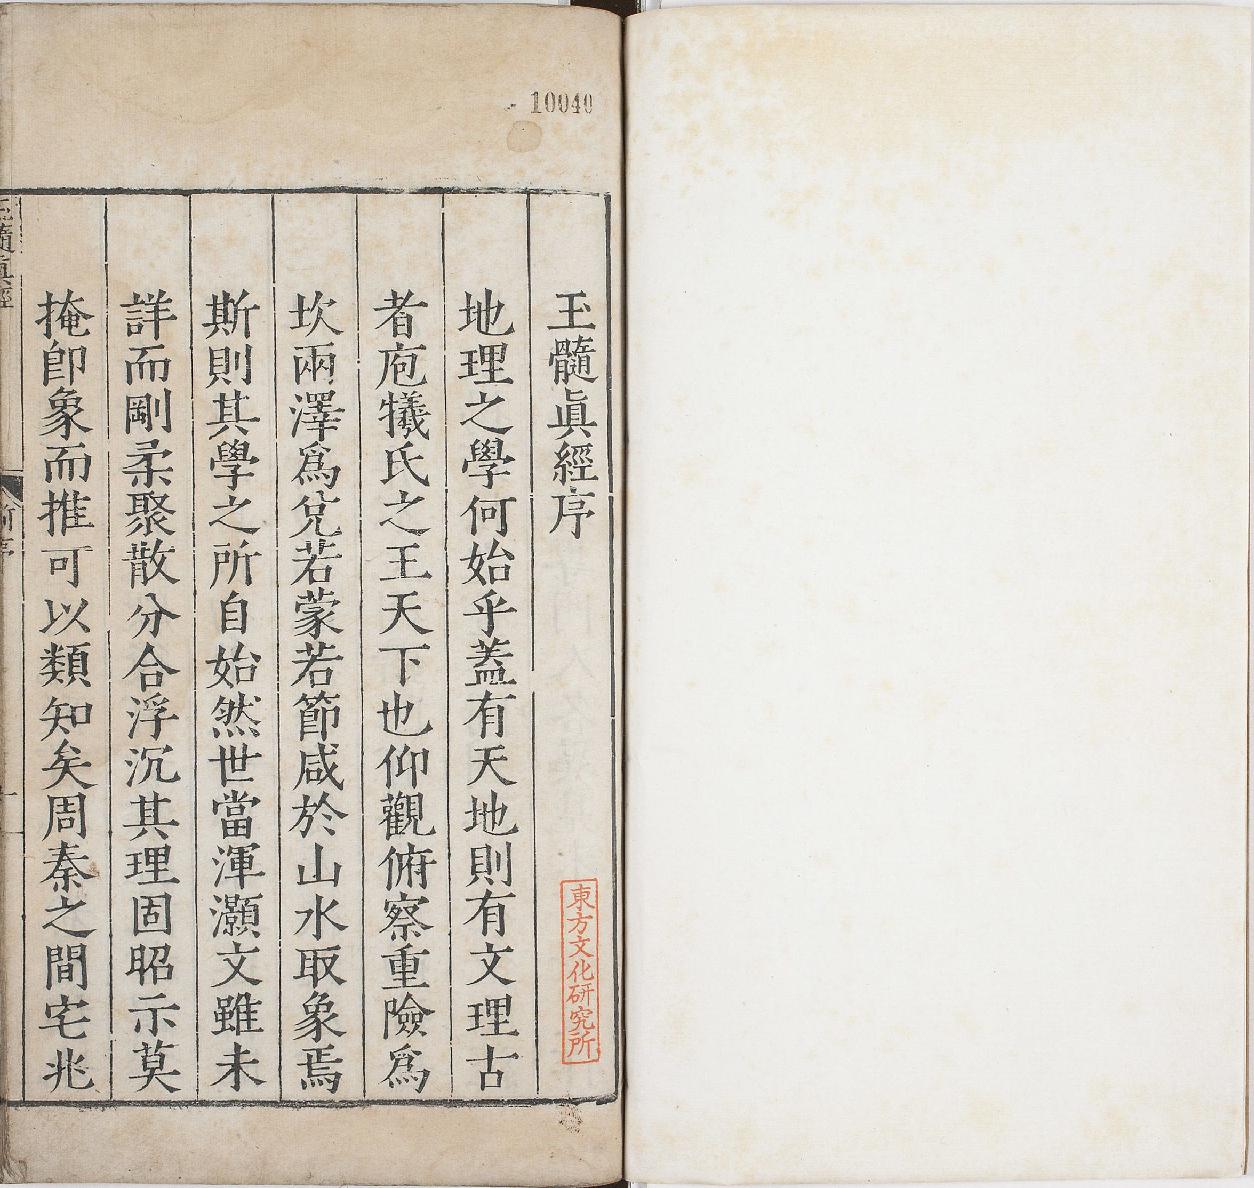 10040
玉髓眞經序
地理之學何始乎蓋有天地則有文理古
者庖犧氏之王天下也仰觀俯察重險爲
坎兩澤爲兌若蒙若節咸於山水取象焉
斯則其學之所自始然世當渾灝文雖未
詳而剛柔聚散分合浮沉其理固昭示莫
掩卽象而推可以類知矣周秦之間宅兆
東方文化研究所
玉髓眞經